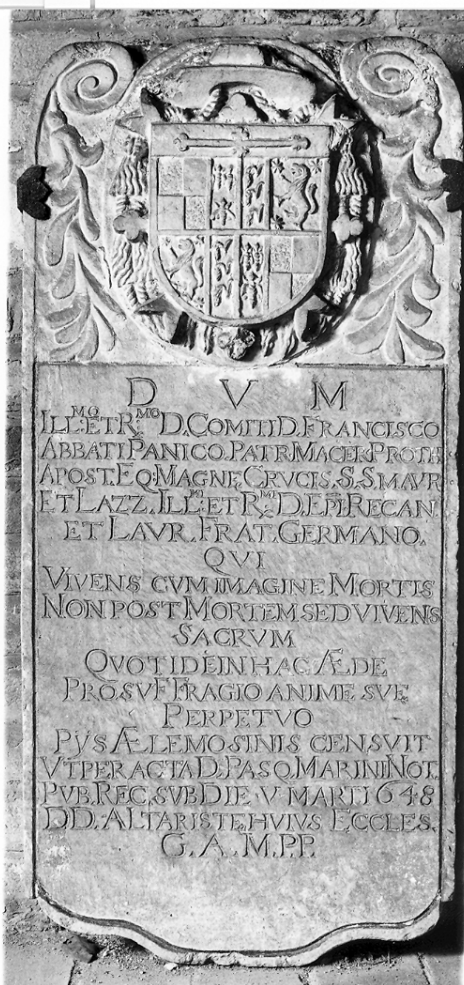 D V M
ILL.MO ET R.MO D. COMITI D. FRANCISCO
ABBATI PANICO. PATR MACER. PROTH
APOST. EQ. MAGNE CRVCIS. S.S. MAVR
ET LAZZ. ILL.MI ET R.MI D. EPI RECAN
ET LAVR. FRAT. GERMANO.
QVI
VIVENS CVM IMAGINE MORTIS
NON POST MORTEM SED VIVENS
SACRVM
QVOTIDE IN HAC ÆDE
PRO SVFFRAGIO ANIME SVE
PERPETVO
PYS ÆLEMOSINIS CENSVIT
VT PER ACTA D. PASQ. MARINI NOT.
PVB. REC. SVB DIE V MARTI 1648
DD. ALTARISTE HVIVS ECCLES.
G. A. M. P.P.